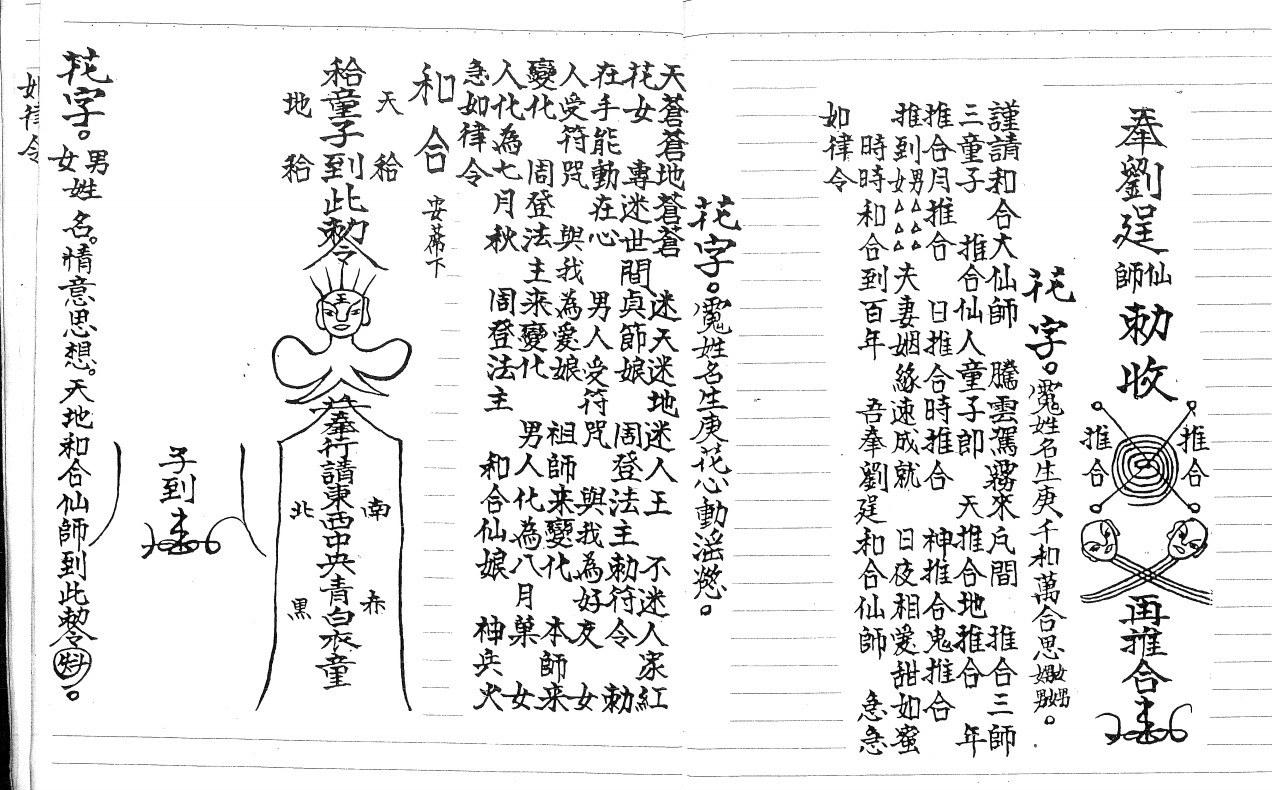 奉劉𨓍仙師勅收
推合
推合
再推合
花字。
姓名生庚千和萬合思
謹請和合大仙師 騰雲駕霧來凢間 推合三師
三童子 推合仙人童子郎 天推合地推合 年
推合月推合 日推合時推合 神推合鬼推合
推到男女△△△△夫妻姻緣速成就 日夜相愛甜如蜜
時時和合到百年 吾奉劉 和合仙師 急急
如律令
花字。
姓名生庚花心動滛慾。
天蒼蒼地蒼蒼 迷天迷地迷人王 不迷人家紅
花女 專迷世間貞節娘 周登法主勅符令 勅
在手能動在心 男人受符咒 與我為好友 女
人受符咒 與我為愛娘 祖師来變化 本師来
變化 周登法主来變化 男人化為八月菓 女
人化為七月秋 周登法主 和合仙娘 神兵火
急如律令
和合 安蓆下
天 地
童子到此勅令
王
奉行請東西中央青白衣童
南 北
赤 黒
子到
花字。男女姓名。情意思想。天地和合仙師到此勅令。
如律令